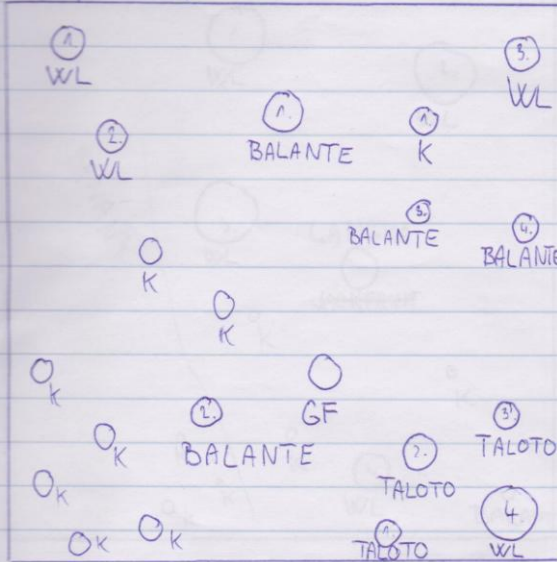 1.
WL
3.
WL
1.
BALANTE
1.
K
2.
WL
3.
BALANTE
4.
BALANTE
K
K
K
GF
2.
BALANTE
3.
TALOTO
K
2.
TALOTO
K
4.
WL
K
K
1.
TALOTO